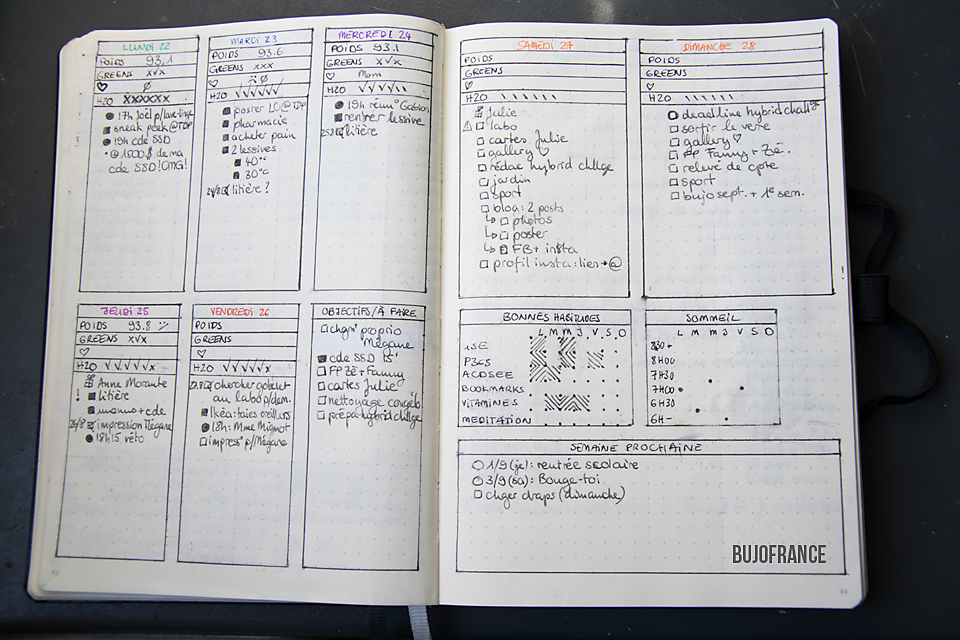 LUNDI 22
POIDS 93,1
GREENS x√x
♡ Ø
H2O XXXXXX
17h Joël p/lave-linge
sneak peek @TDP
19h cde SSD
1500 $ de ma
cde SSD! OMG!
MARDI 23
POIDS 93.6
GREENS xxx
♡ Ø
H2O √√√√√√
poster LO @TDP
pharmacie
acheter pain
2 lessives
40°C
30°C
24/8 litière?
MERCREDI 24
POIDS 93.1
GREENS x√x
♡ Mom
H2O √√√√
19h réun°
rentrer lessive
25/8 litière
JEUDI 25
POIDS 93.8
GREENS x√x
♡
H2O √√√√√x
Anne Morante
! litière
memno + cde
26/8 impression Mégane
18h15 véto
VENDREDI 26
POIDS
GREENS
♡
H2O √√√√√x
chercher gobelet
au labo p/dem.
Ikéa: taies oreillers
18h: Mme Mignot
impress° p/Mégane
OBJECTIFS/À FAIRE
chgnt proprio
Mégane
cde SSD
PP Zé + Fanny
cartes Julie
nettoyage congélo
prépa hybrid chllge
SAMEDI 27
POIDS
GREENS
♡
H2O
Julie
labo
cartes Julie
gallery ♡
rédac hybrid chllge
jardin
sport
blog: 2 posts
↳ photos
↳ poster
↳ FB + insta
profil insta: lien → @
DIMANCHE 28
POIDS
GREENS
♡
H2O
deadline hybrid challge
sortir le verre
gallery ♡
PP Fanny + Zé.
relevé de cpte
sport
bujo sept. + 1e sem.
BONNES HABITUDES
L M M J V S D
1SE
P365
ACDSEE
BOOKMARKS
VITAMINES
MEDITATION
SOMMEIL
L M M J V S D
830+
8H00
7H30
7H00
6H30
6H-
SEMAINE PROCHAINE
1/9 (je): rentrée scolaire
3/9 (sa): Bouge-toi
chger draps (dimanche)
43
44
BUJOFRANCE